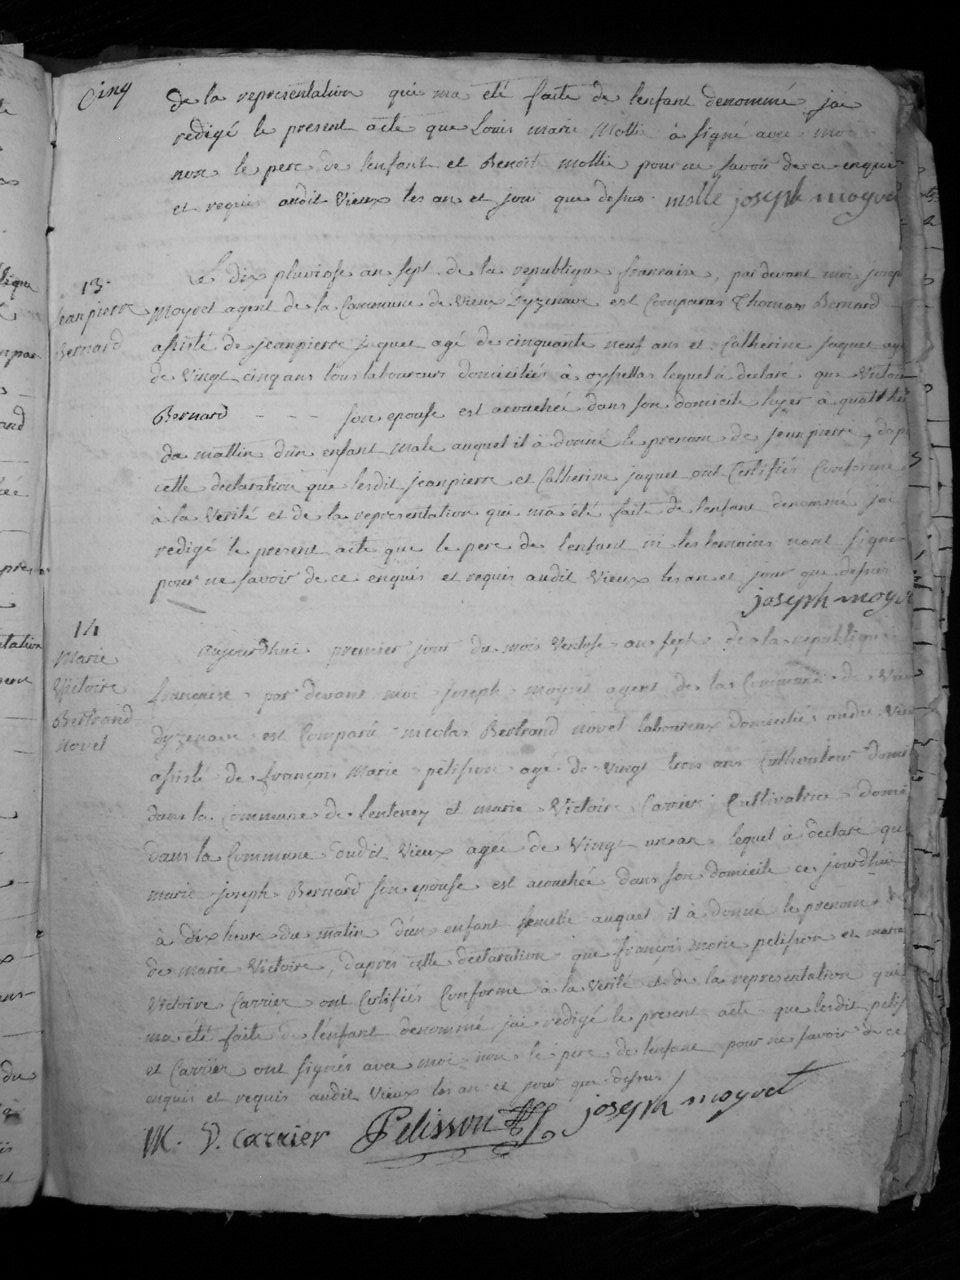 Cinq
de la representation qui ma eté faite de lenfant denommé jai
redigé le present acte que Louis marie Mollie à signé avec moi
non le pere de lenfant et Benoit mollie pour ne savoir de ce enquis
et requis audit Vieux les an et jour que desus. molle joseph moyret
13.
jean pierre
Bernard
Le dix pluviose an sept de la republique francaise, par devant moi joseph
Moyret agent de la Commune de Vieux Dyzenave est Comparus Thomas Bernard
assisté de jeanpierre jaquet agé de cinquante neuf ans et Catherine jaquet agé
de Vingt cinq ans tous laboureurs domiciliés à lequel à declaré que Victoire
Bernard - - - son epouse est acouchée dans son domicile hyer à quatre
du mattin d'un enfant male auquel il à donné le prenom de jean pierre, dapr
cette declaration que lesdit jeanpierre et Catherine jaquet ont Certifiés Conforme
à la Verité et de la representation qui ma été faite de lenfant denommé jai
redigé le present acte que le pere de lenfant ni les temoins nont signer
pour ne savoir de ce enquis et requis audit Vieux les an et jour que desus
joseph moyret
14
Marie
Victoire
Bertrand
novel
aujourdhui premier jour du mois Ventose an sept de la republique
francaise par devant moi joseph moyret agent de la Commune de Vieux
dyzenave est Comparu nicolas Bertrand novel laboureux domicilié audit Vieux
assisté de françois Marie pelisson agé de Vingt trois ans Cultivateur domi
dans la Commune de Lentenay et marie Victoire Carrier Cultivatrice domi
dans la Commune dudit Vieux agée de Vingt un an lequel à declaré que
marie joseph Bernard son epouse est acouchée dans son domicile ce jourdhui
à dix heure du matin d'un enfant femelle auquel il à donné le prenom
de marie Victoire, dapres cette declaration que françois marie pelission et marie
Victoire Carrier ont Certifiés Conforme à la Verité et de la representation qui
ma eté faite de lenfant denommé jai redigé le present acte que lesdit pelis
et Carrier ont signés avec moi non le pere de lenfant pour ne savoir de ce
enquis et requis audit Vieux les an et jour que desus
M. V. Carrier Pelisson joseph moyret